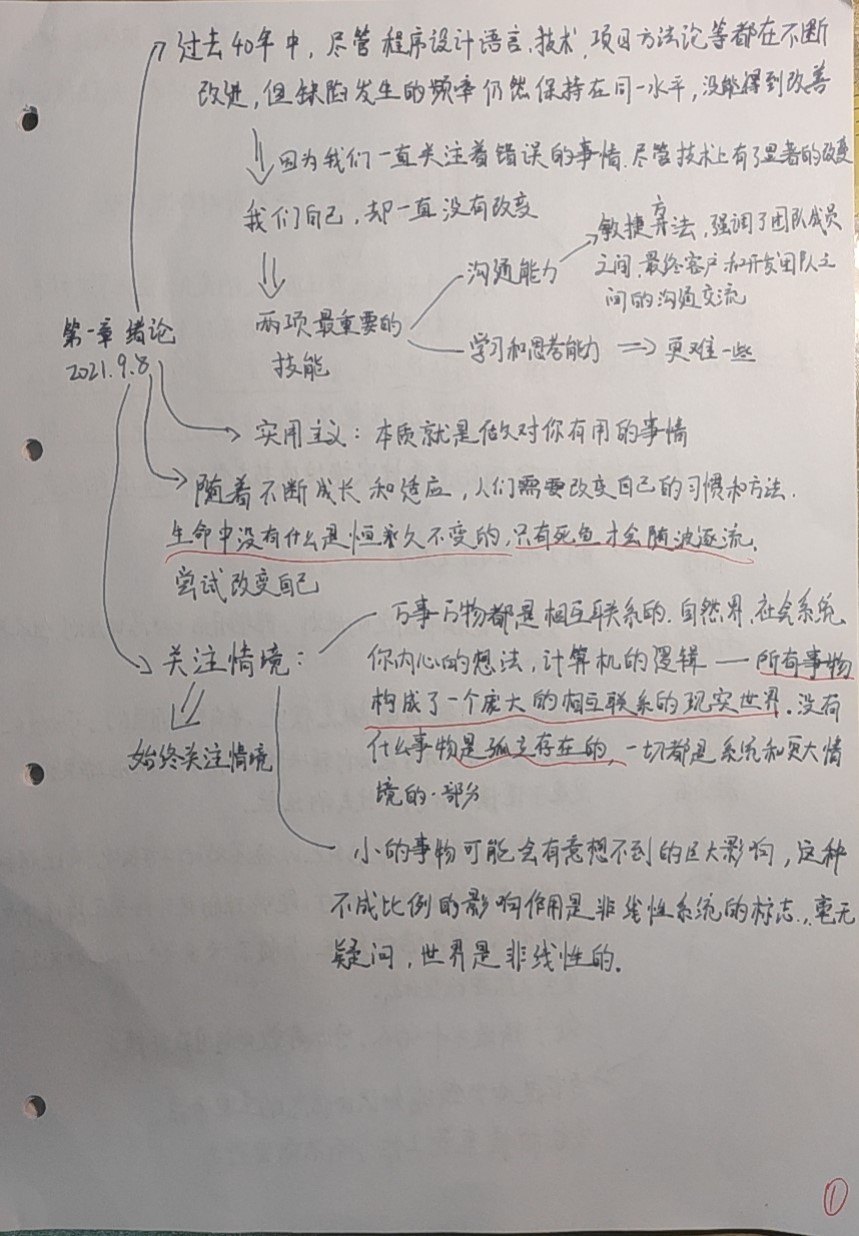 过去40年中，尽管程序设计语言、技术、项目方法论等都在不断
改进，但缺陷发生的频率仍然保持在同一水平，没能得到改善
因为我们一直关注着错误的事情.尽管技术上有了显著的改变
我们自己，却一直没有改变
两项最重要的
技能
沟通能力
敏捷方法，强调了团队成员
之间、最终客户和开发团队之
间的沟通交流
学习和思考能力 => 更难一些
第一章 绪论
2021.9.8
实用主义：本质就是做对你有用的事情
随着不断成长和适应，人们需要改变自己的习惯和方法.
生命中没有什么是恒永久不变的，只有死鱼才会随波逐流.
尝试改变自己
关注情境：
始终关注情境
万事万物都是相互联系的.自然界、社会系统
你内心的想法，计算机的逻辑 — 所有事物
构成了一个庞大的相互联系的现实世界.没有
什么事物是孤立存在的，一切都是系统和更大情
境的一部分
小的事物可能会有意想不到的巨大影响，这种
不成比例的影响作用是非线性系统的标志.，毫无
疑问，世界是非线性的.
①